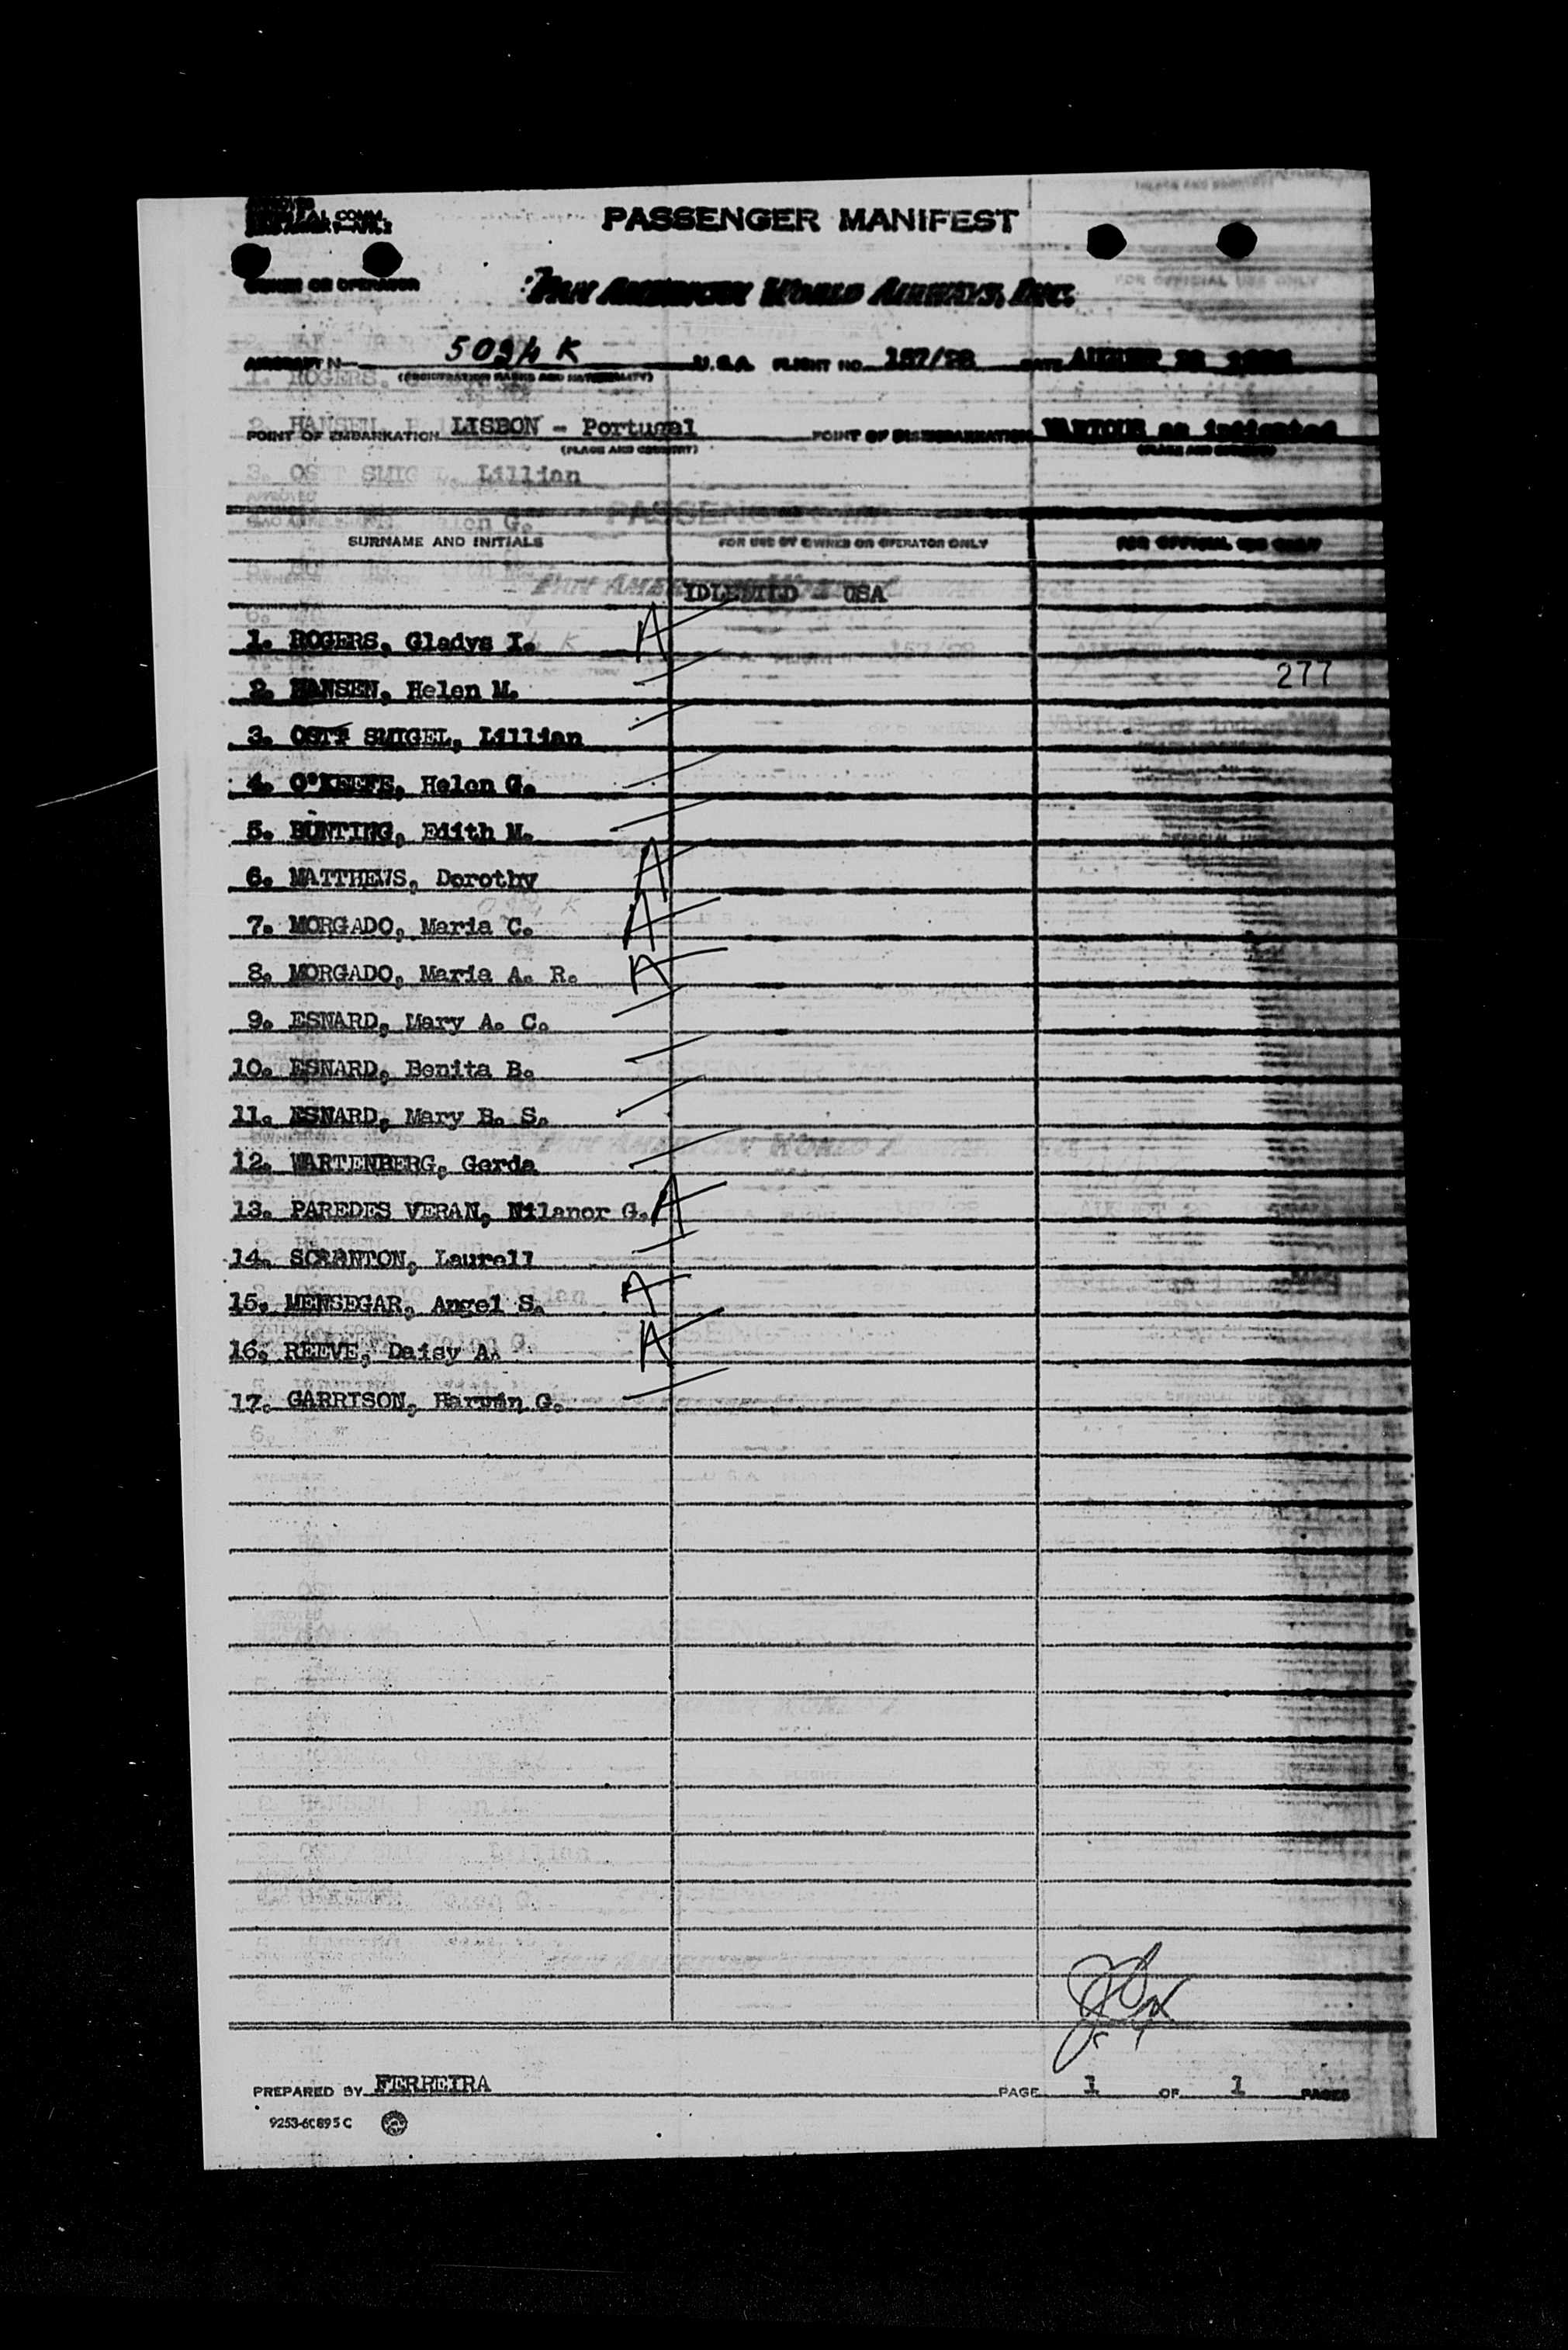 PASSENGER MANIFEST
OWNER OR OPERATOR
PAN AMERICAN WORLD AIRWAYS, INC.
AIRCRAFT N 5094 K U.S.A. FLIGHT NO. 157/28 DATE AUGUST 28
(REGISTRATION MARKS AND NATIONALITY)
POINT OF EMBARKATION LISBON - Portugal POINT OF DISEMBARKATION VARIOUS as indicated
(PLACE AND COUNTRY) (PLACE AND COUNTRY)
SURNAME AND INITIALS FOR USE BY OWNER OR OPERATOR ONLY FOR OFFICIAL USE ONLY
IDLEWILD USA
1. ROGERS, Gladys I. A
277
2. HANSEN, Helen M.
3. OSTT SMIGEL, Lillian
4. O'KEEFE, Helen G.
5. BUNTING, Edith M.
6. MATTHEWS, Dorothy A
7. MORGADO, Maria C. A
8. MORGADO, Maria A. R. A
9. ESNARD, Mary A. C.
10. ESNARD, Benita B.
11. ESNARD, Mary B. S.
12. WARTENBERG, Gerda
13. PAREDES VERAN, Nilanor G. A
14. SCRANTON, Laurell
15. MENSEGAR, Angel S. A
16. REEVE, Daisy A. A
17. GARRISON, Harwin G.
PREPARED BY FERREIRA PAGE 1 OF 1 PAGES